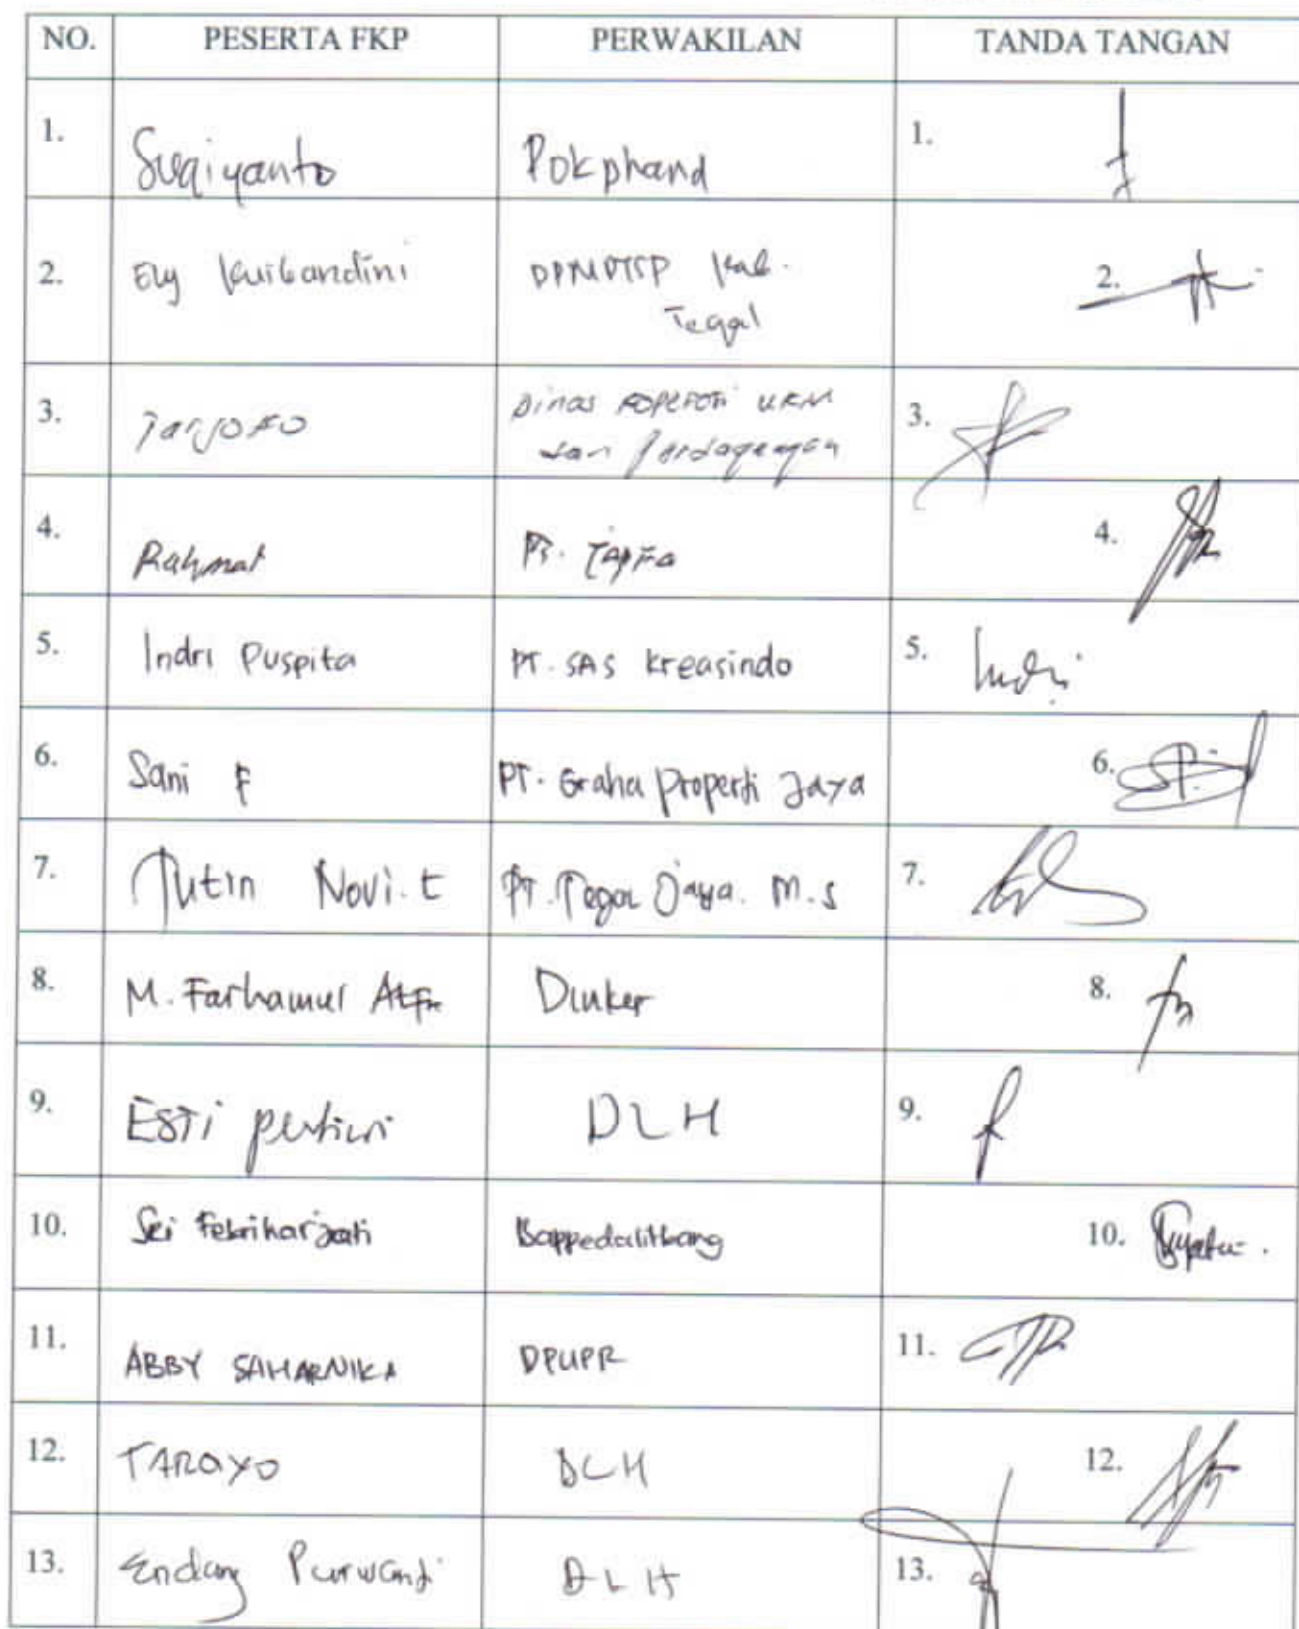 NO. PESERTA FKP PERWAKILAN TANDA TANGAN
1. Sugiyanto Pokphand 1.
2. Ely Kurbandini DPMPTSP Kab. 2.
Tegal
3. Tarjono Dinas Koperasi UKM 3.
dan Perdagangan
4. Rahmat PT. Japfa 4.
5. Indri Puspita PT. SAS Kreasindo 5. Indri
6. Sani F PT. Graha Properti Jaya 6.
7. Tutin Novi. t PT. Tegar Jaya. M.S 7.
8. M. Farhamul Dinker 8.
9. ESTi pertiwi DLH 9.
10. Sri Febriharjati Bappedalitbang 10.
11. ABBY SAHARNIKA DPUPR 11.
12. TAROYO DLH 12.
13. Endang Purwanti DLH 13.